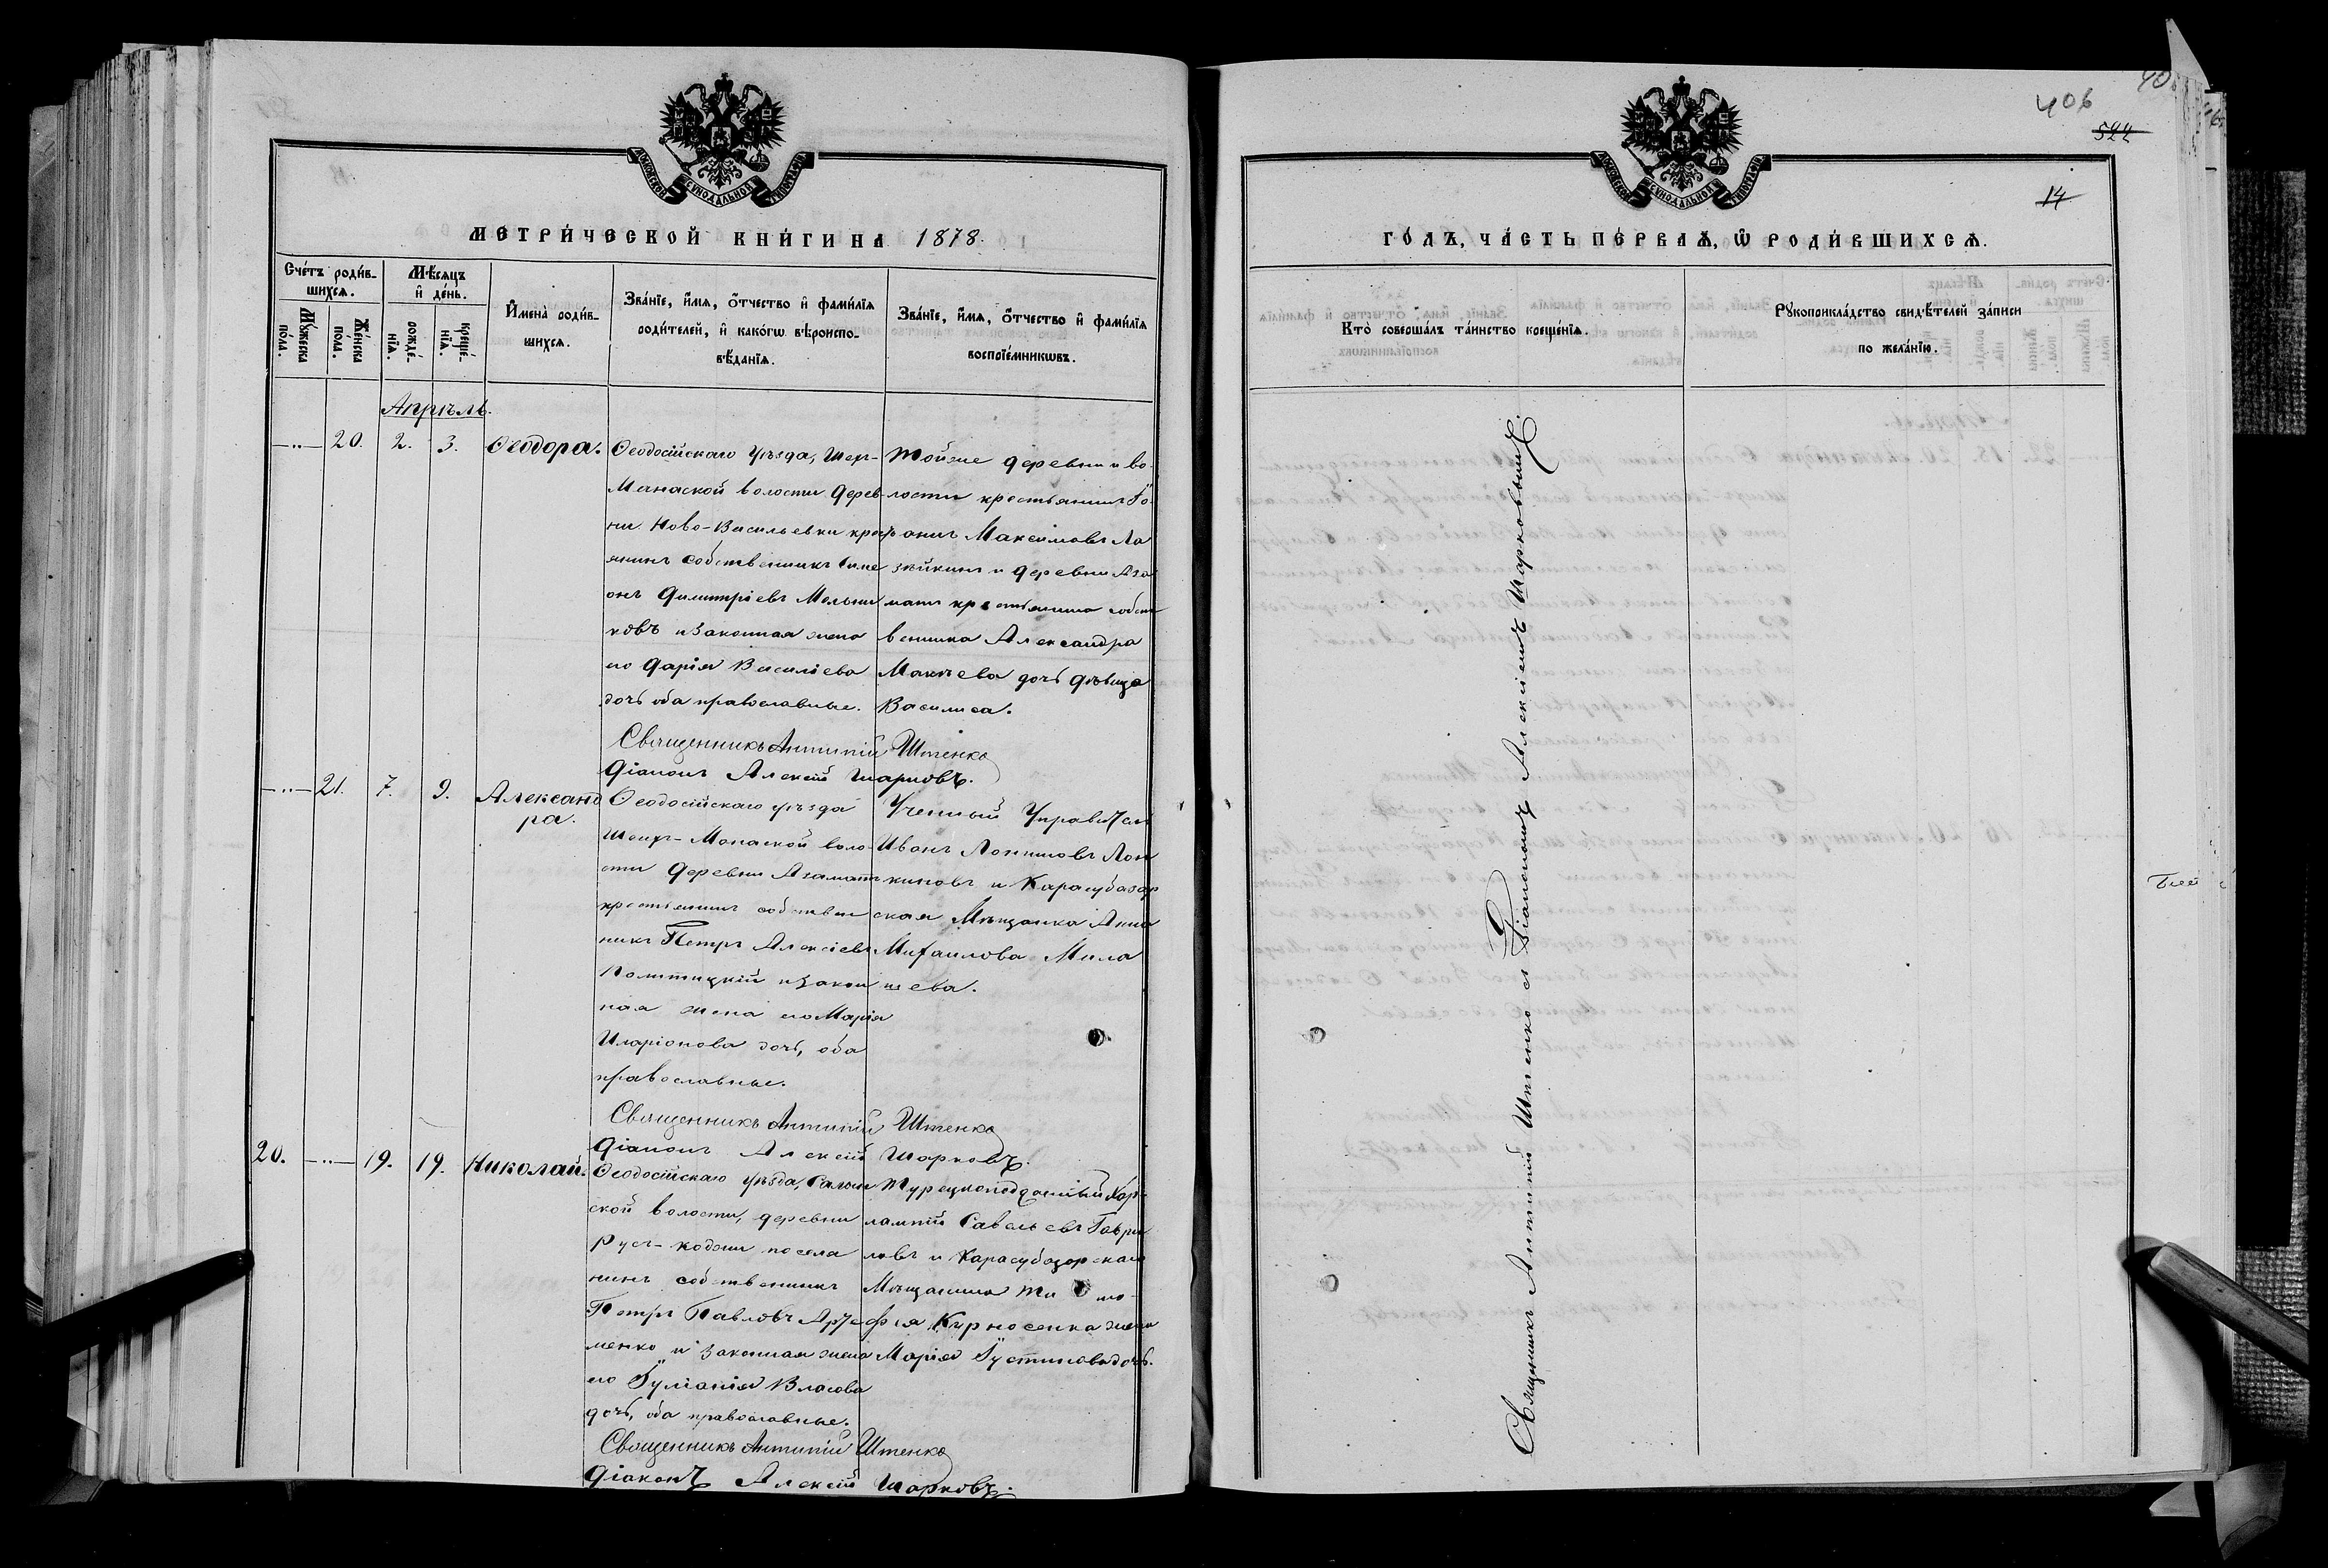 МОСКОВСКОЙ СѴНОДАЛЬНОЙ ТИПОГРАФІИ
МЕТРИ́ЧЕСКОЙ КНИ́ГИ НА 1878.
Сче́тъ роди́в-
шихсѧ.
Мꙋ́жеска пола.
Же́нска пола.
Мѣ́сѧцъ
и҆ де́нь.
рожде́-
нїѧ.
креще́-
нїѧ.
И҆мена̀ роди́в-
шихсѧ.
Зва́нїе, и҆́мѧ, ѻ҆́тчество и҆ фами́лїѧ
роди́телей, и҆ како́гѡ вѣроиспо-
вѣ́данїѧ.
Зва́нїе, и҆́мѧ, ѻ҆́тчество и҆ фами́лїѧ
воспрїе́мникѡвъ.
Апрѣль.
—..— 20. 2. 3. Ѳеодора.
Ѳеодосійскаго Уѣзда, Шех-
Манаской волости дерев-
ни Ново-Васильевки кресть
янинъ собственникъ Симе
онъ Димитріевъ Мельни
ковъ и законная жена
его Дарія Василіева
дочь оба православные.
Тойже деревни и во-
лости крестьянинъ Ѳ
Максимовъ Ла
зѣйкинъ и деревни Аза
матъ крестьянина собст
венника Александра
Макѣева дочь дѣвица
Василиса.
Священникъ Антипій Штенко
Діаконъ Алексій Шарковъ.
—..— 21. 7. 9. Александ
ра.
Ѳеодосійскаго уѣзда
Шейхъ-Монаской воло-
сти деревни Азаматъ
крестьянинъ собствен
никъ Петръ Алексіевъ
Политицкій и закон
ная жена его Марія
Иларіонова дочь, оба
православные.
Ученый Управитель
Иванъ Лон
киновъ и Карасубазар
ская Мѣщанка Анна
Михаилова Мила
шева.
Священникъ Антипій Штенко
Діаконъ Алексій Шарковъ.
20. —..— 19. 19. Николай.
Ѳеодосійскаго уѣзда, Салын
ской волости, деревни
Русъ-ходжи поселя
нинъ собственникъ
Петръ Павловъ Арте
менко и законная жена
его Іуліанія Власова
дочь, оба православные.
Турецкоподданный Хар-
лампій Савельевъ Гаври
ловъ и Карасубазарскаго
Мѣщанина Тимо-
фея Кирносенка жена
Марія Іустинова дочь.
Священникъ Антипій Штенко
Діаконъ Алексій Шарковъ.
406
522
14
МОСКОВСКОЙ СѴНОДАЛЬНОЙ ТИПОГРАФІИ
ГО́ДЪ, ЧА́СТЬ ПЕ́РВАѦ, Ѡ҆ РОДИ́ВШИХСѦ.
Кто̀ соверша́лъ та́инство креще́нїѧ.
Рꙋкоприкла́дство свидѣ́телей за́писи
по жела́нїю.
Священникъ Антипій Штенко съ Діакономъ Алексіемъ Шарковымъ.